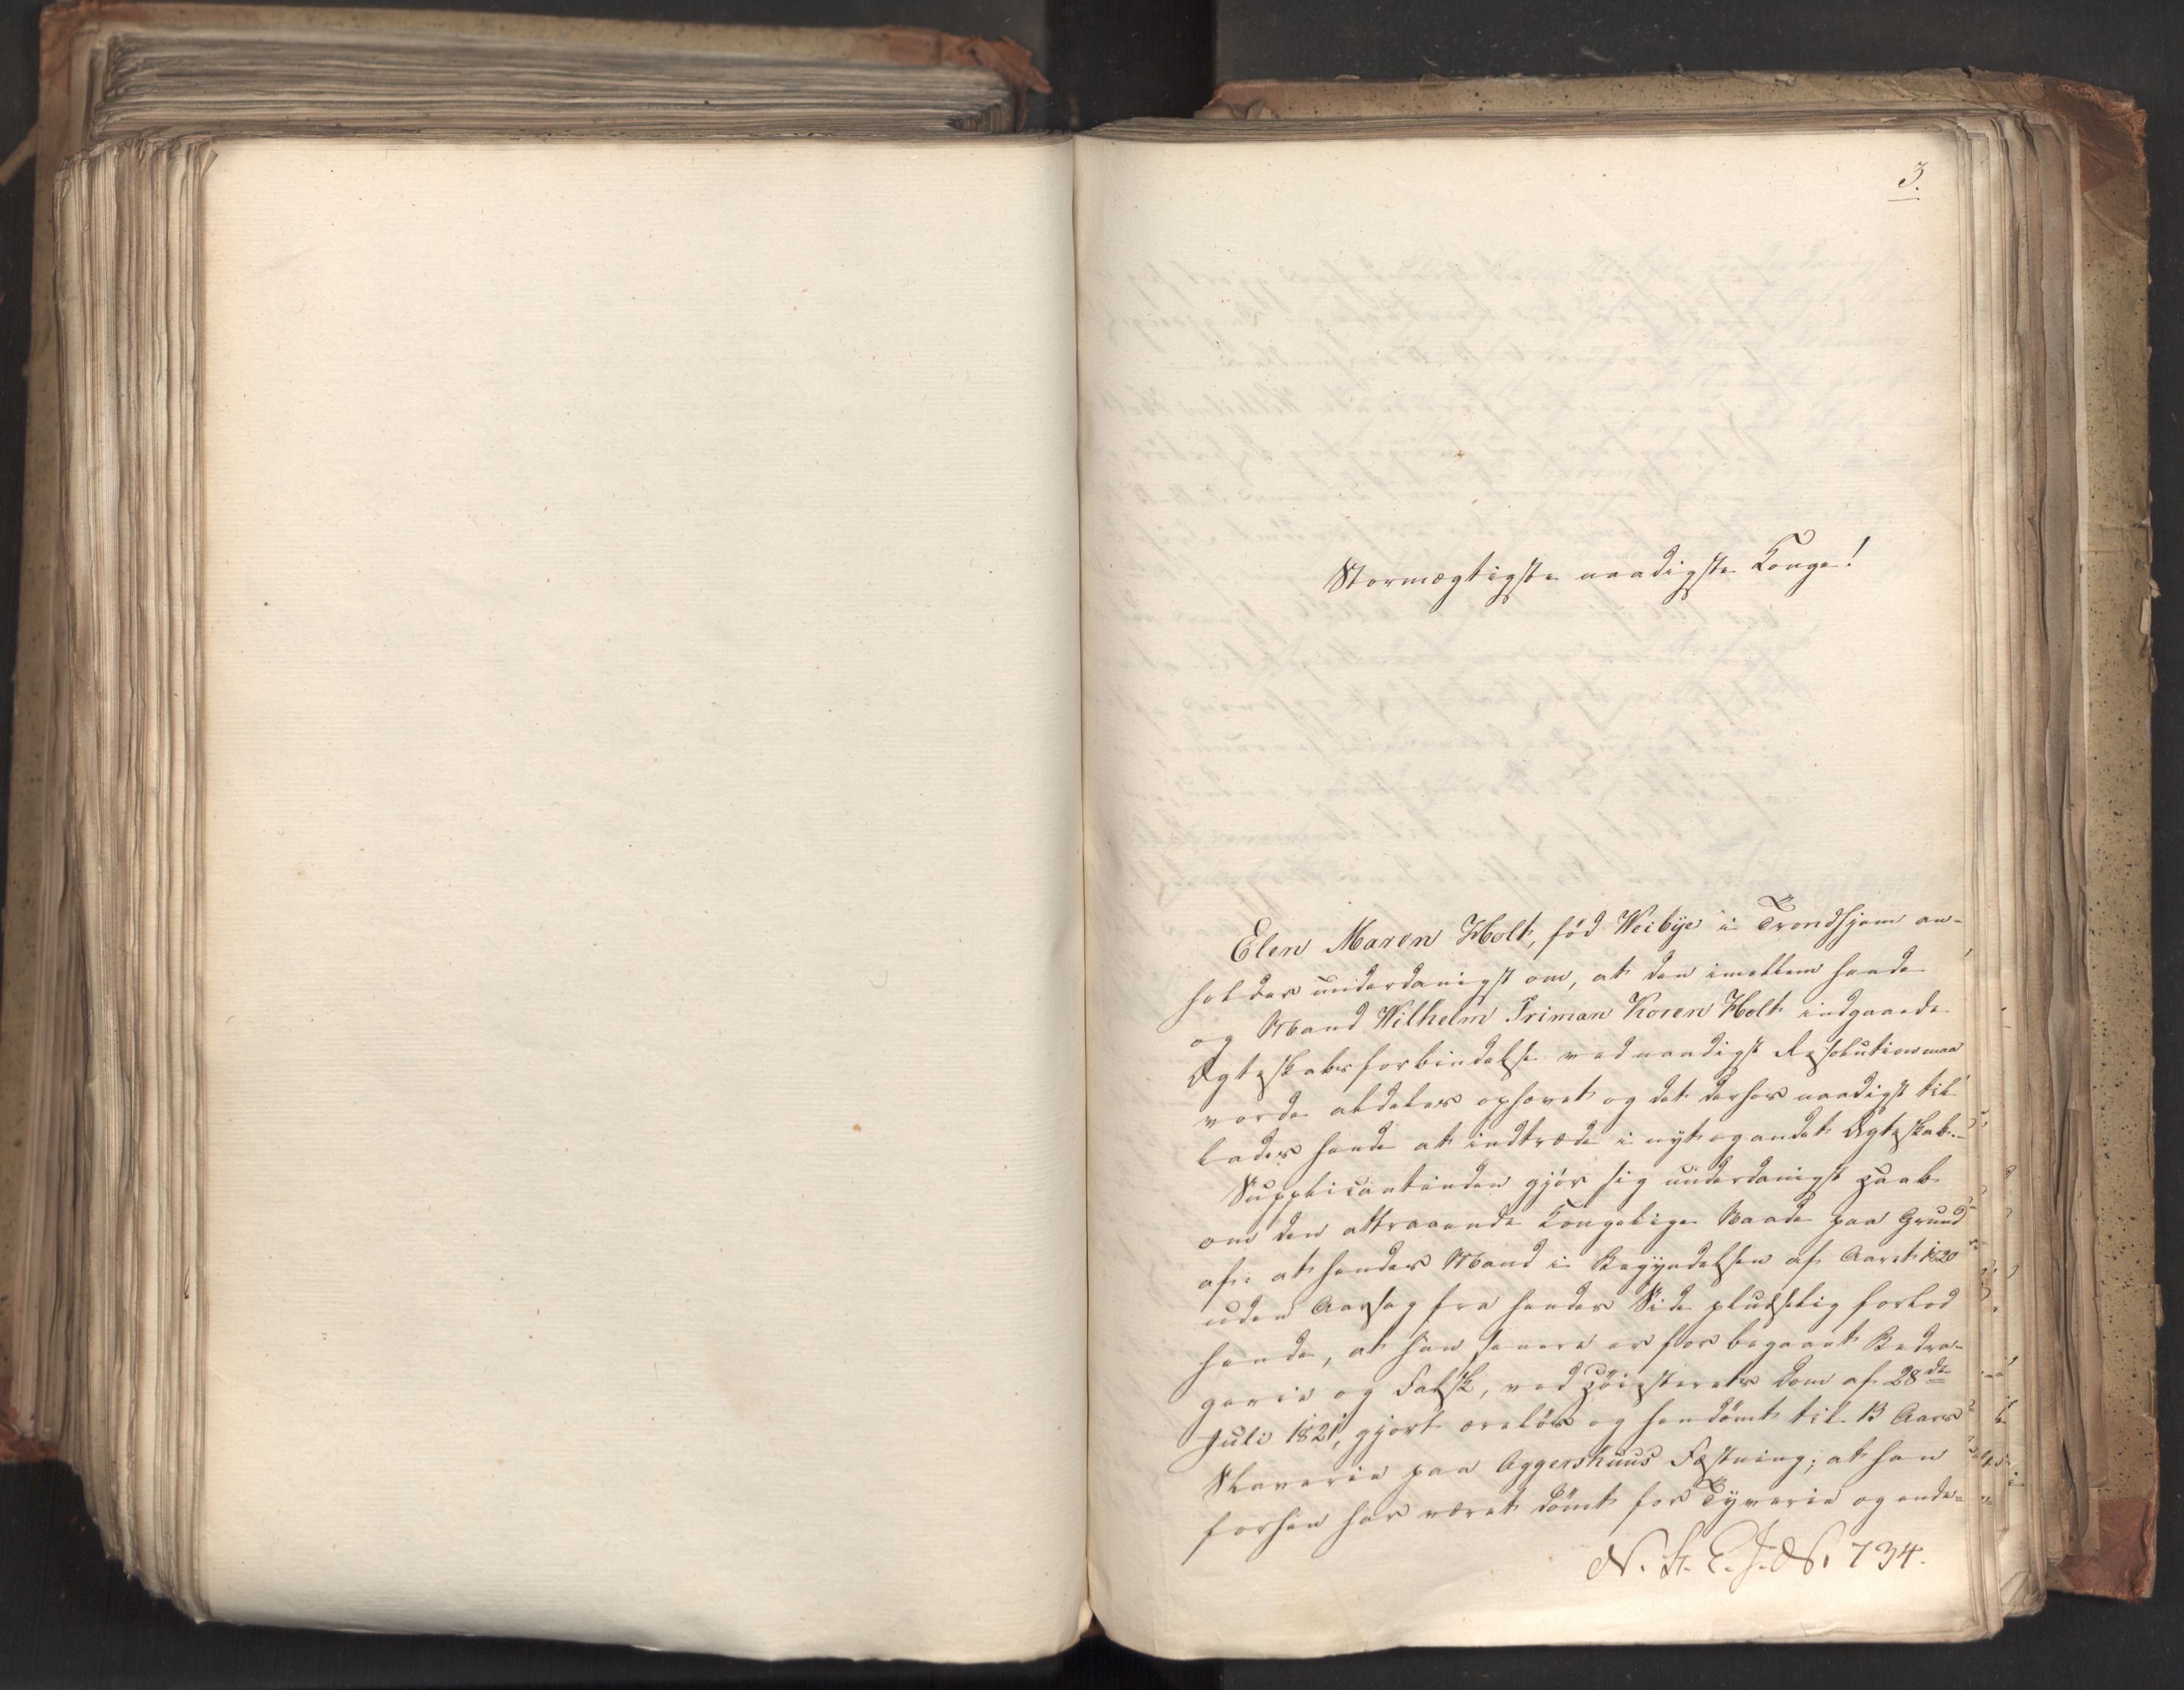 3.
Stormægtigste naadigste Konge!
Elen Maren Holt, fød Weibye i Trondhjem an-
holder underdanigst om, at den imellem hende
og Mand Wilhelm Friman Koren Holt indgaaede
Ægteskabsforbindelse ved naadigst Resolution maa
vorde aldeles ophævet og det derhos naadigst til
lades hende at indtræde i nyt og andet Ægteskab.-
Supplicantinden gjør sig underdanigst Haab
om den attraaende Kongelige Naade paa Grund
af: at hendes Mand i Begyndelsen af Aaret 1820
uden Aarsag fra hendes Side pludselig forlod
hende, at han senere er for begaaet Bedra-
gerie og Falsk, ved Høiesterets Dom af 28de
Juli 1821, gjort æreløs og hendømt til 13 Aars
Slaverie paa Aggershuus Fæstning; at han
forhen har været dømt for Tyverie og ende-
N. St. E. J. No 734.